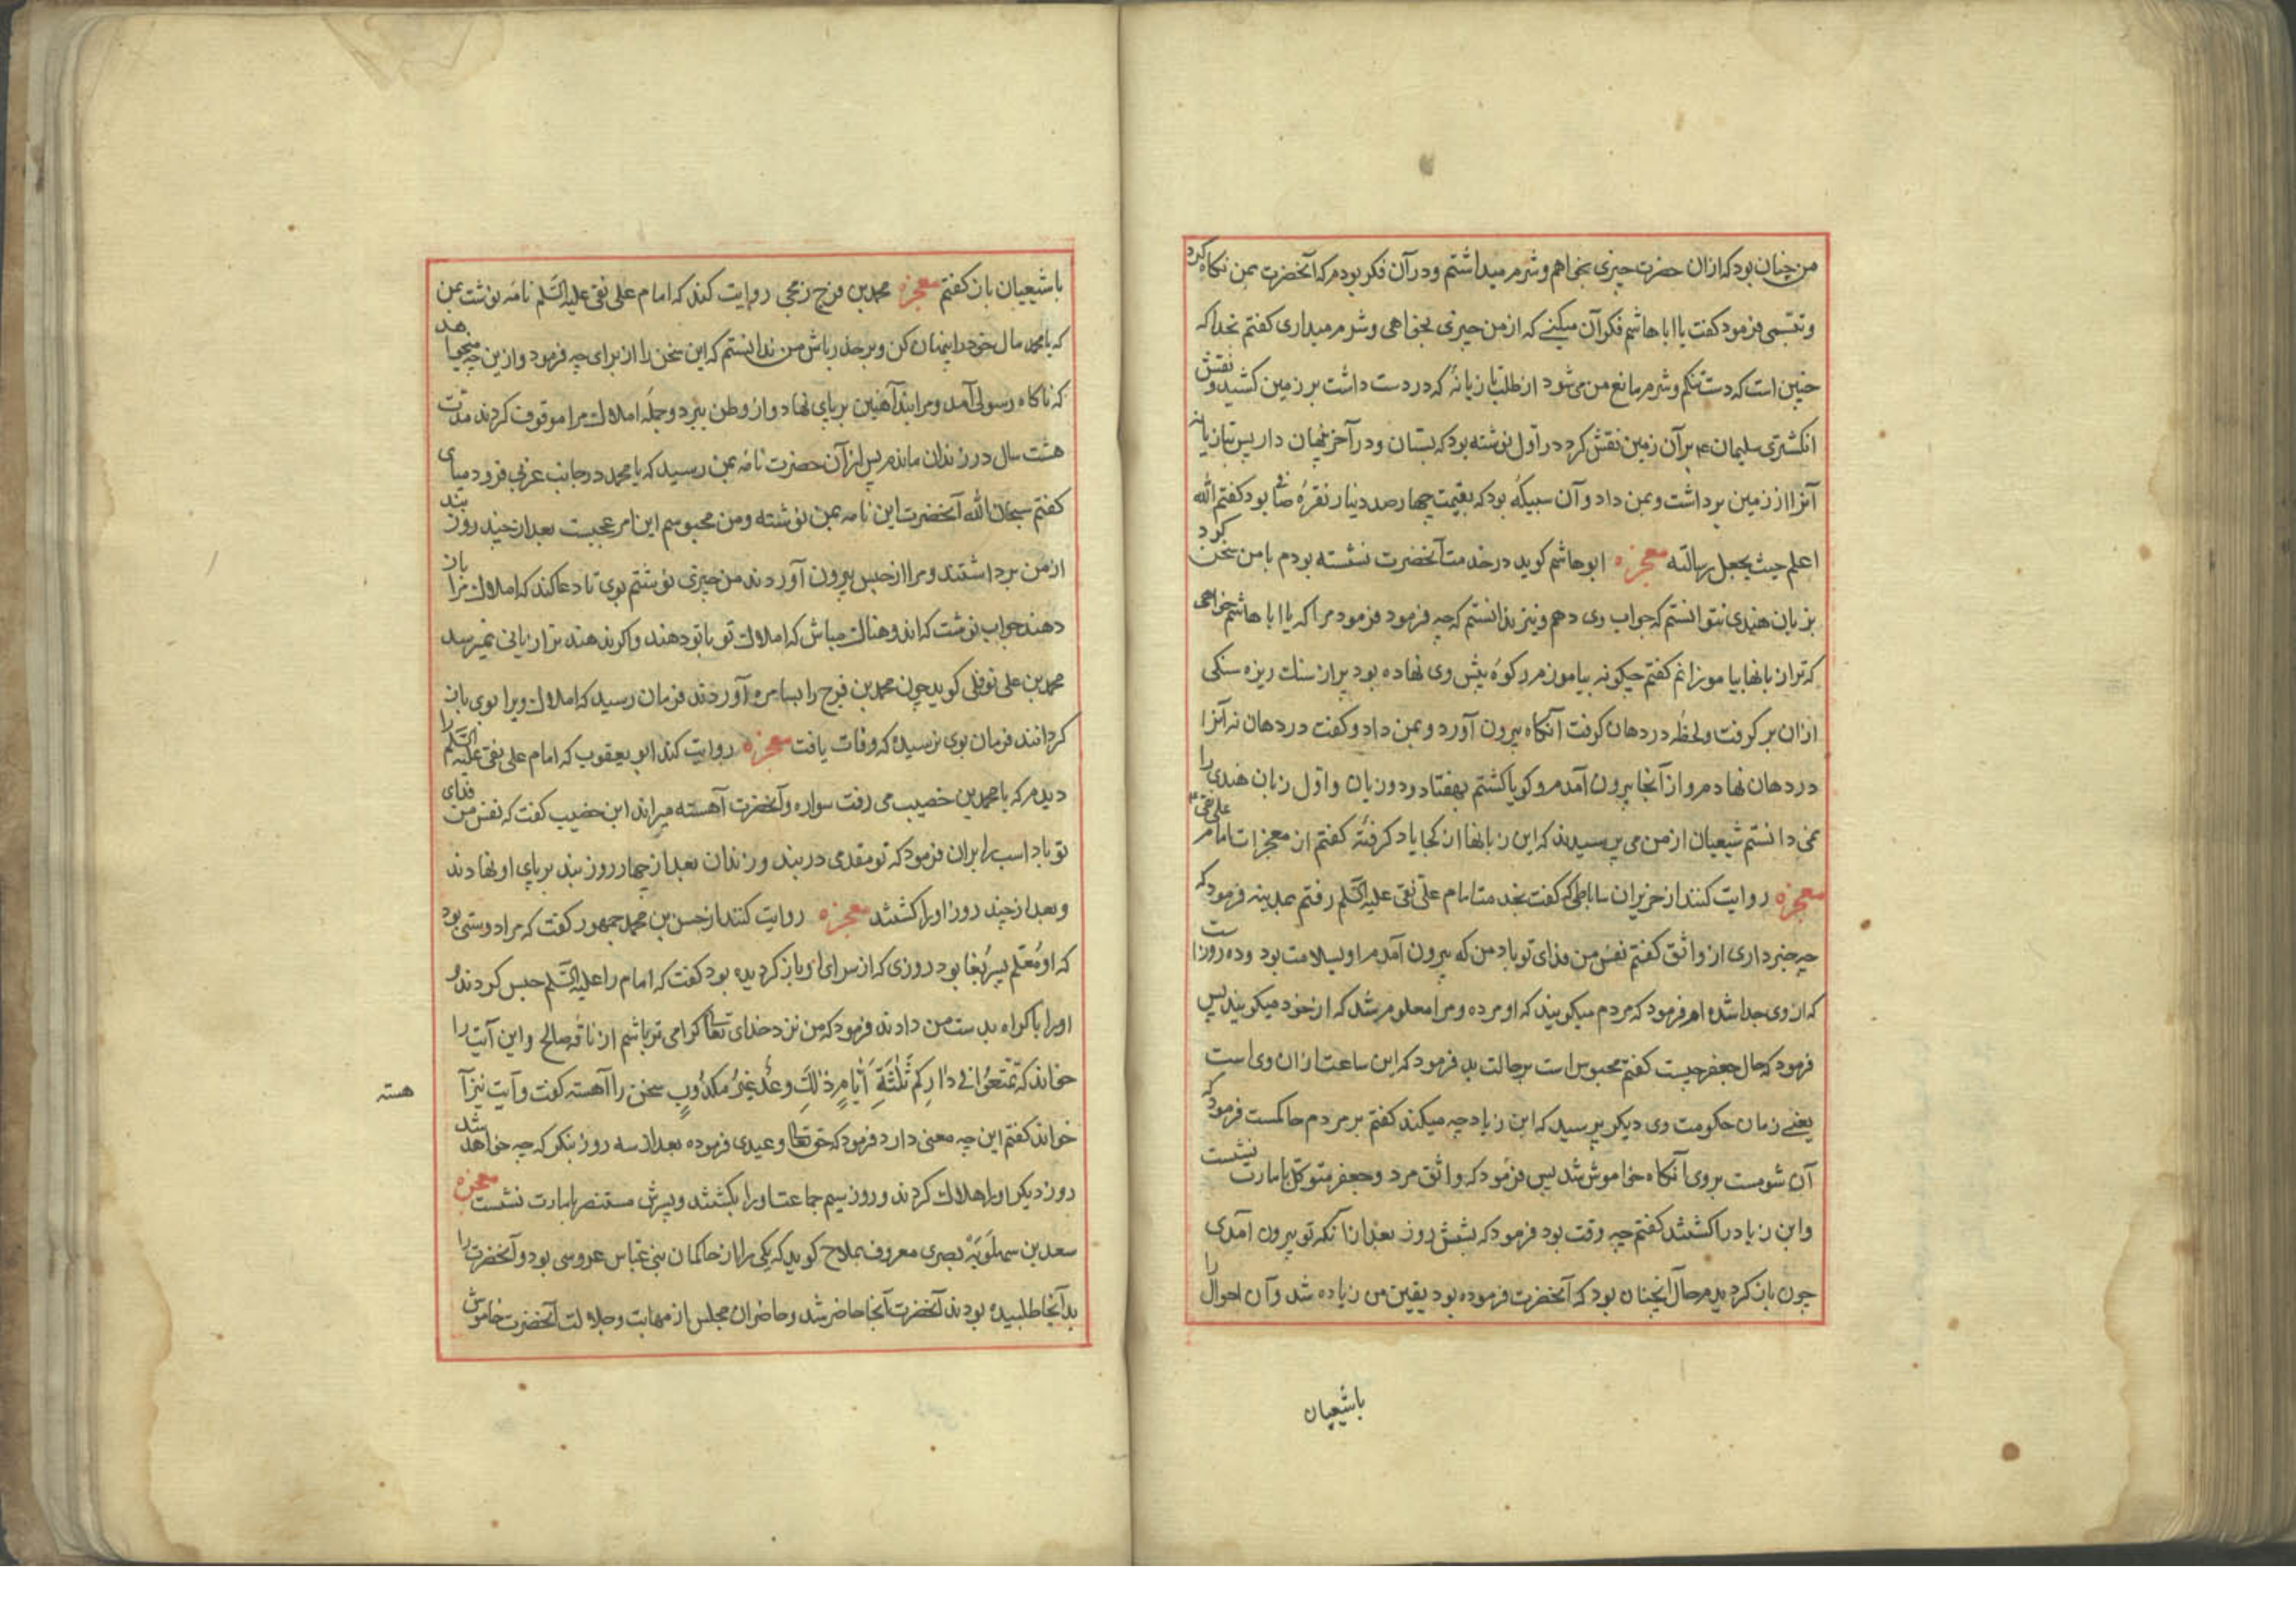 من چنان بود که از ان حضرت چیزی بخواهم و شرم میداشتم و در آن فکر بودم که آنحضرت بمن نکاه کرد
و تبسمی فرمود کفت یا ابا هاشم فکر آن میکنے که از من چیزی بخواهی و شرم میداری کفتم بخدا که
چنین است که دست تنکم و شرم مانع من می شود از طلب تازیانهٔ که در دست داشت بر زمین کشید و نقش
انکشتری سلیمان ۴ بر آن زمین نقش کرد در اول نوشته بود که بستان و در آخر پنهان دار پس بتازیانه
آنرا از زمین برداشت و بمن داد و آن سبیکهٔ بود که بقیمت چهارصد دینار نقرهٔ صافی بود کفتم الله
اعلم حیث یجعل رسالته معجزه ابو هاشم کوید در خدمت آنحضرت نشسته بودم با من سخن کرد
بزبان هندی نتوانستم که جواب وی دهم و نیز ندانستم که چه فرمود فرمود مرا که یا ابا هاشم خواهی
که ترا زبانها بیاموزانم کفتم چکونه بیاموزم رکوهٔ پیش وی نهاده بود پر از سنک ریزه سنکی
از ان بر کرفت و لحظهٔ در دهان کرفت آنکاه بیرون آورد و بمن داد و کفت در دهان نه آنرا
در دهان نهادم و از آنجا بیرون آمدم و کویا کشتم بهفتاد و دو زبان و اول زبان هندی را
نمی دانستم شیعیان از من می پرسیدند که این زبانها از کجا یاد کرفتهٔ کفتم از معجزات امام علی نقی ۴
معجزه روایت کنند از خیران ساباطی که کفت بخدمت امام علی نقی علیه السّلم رفتم بمدینه فرمود که
چه خبر داری از واثق کفتم نفس من فدای تو باد من که بیرون آمدم او بسلامت بود و ده روز است
که از وی جدا شده ام فرمود که مردم میکویند که او مرده و مرا معلوم شد که از خود میکویند پس
فرمود که حال جعفر چیست کفتم محبوس است بر حالت بد فرمود که این ساعت از ان وی است
یعنے زمان حکومت وی دیکر پرسید که ابن زیاد چه میکند کفتم بر مردم حاکمست فرمود که
آن شومست بر وی آنکاه خاموش شد پس فرمود که واثق مرد و جعفر متوکل بامارت نشست
و ابن زیاد را کشتند کفتم چه وقت بود فرمود که بشش روز بعد از آنکه تو بیرون آمدی
چون باز کردیدم حال آنچنان بود که آنحضرت فرموده بود یقین من زیاده شد و آن احوال را
باشیعیان
با شیعیان باز کفتم معجزه محمد بن فرج رخجی روایت کند که امام علی نقی علیه السّلم نامهٔ نوشت بمن
که یا محمد مال خود را پنهان کن و بر حذر باش من ندانستم که این سخن را از برای چه فرمود و از ین چه میخواهد
که ناکاه رسولی آمد و مرا بند آهنین بر پای نهاد و از وطن ببرد و جملهٔ املاک مرا موقوف کردند مدت
هشت سال در زندان ماندم پس از آن حضرت نامهٔ بمن رسید که یا محمد در جانب غربی فرود میای
کفتم سبحان الله آنحضرت این نامه بمن نوشته و من محبوسم این امر عجبیست بعد از چند روز بند
از من برداشتند و مرا از حبس بیرون آوردند من چیزی نوشتم بوی تا دعا کند که املاک مرا باز
دهند جواب نوشت که اندوهناک مباش که املاک تو با تو دهند و اکر ندهند ترا زیانی نمیرسد
محمد بن علی نوفلی کوید چون محمد بن فرج را بسامره آوردند فرمان رسید که املاک ویرا بوی باز
کردانند فرمان بوی نرسیده که وفات یافت معجزه روایت کند ابو یعقوب که امام علی نقی علیه السّلم را
دیدم که با محمد بن خصیب می رفت سواره و آنحضرت آهسته میراند ابن خضیب کفت که نفس من فدای
تو باد اسب را بران فرمود که تو مقدمی در بند و زندان بعد از چهار روز بند بر پای او نهادند
و بعد از چند روز او را کشتند معجزه روایت کنند از حسن بن محمد جمهور کفت که مرا دوستی بود
که او معلم پسر بغا بود روزی که از سرای او باز کردیده بود کفت که امام را علیه السّلم حبس کردند و
او را با کراه بدست من دادند فرمود که من نزد خدای تعالی کرامی تر باشم از ناقهٔ صالح و این آیت را
خواند که تَمَتَّعُوا فِی دَارِکُم ثَلٰثَةَ اَیّامٍ ذٰلِکَ وَعْدٌ غَیْرُ مَکْذُوبٍ سخن را آهسته کفت و آیت نیز آ
هسته
خواند کفتم این چه معنی دارد فرمود که حق تعالی وعیدی فرموده بعد از سه روز بنکر که چه خواهد شد
روز دیکر او را هلاک کردند و روز سیم جماعت او را بکشتند و پسرش مستنصر بامارت نشست معجزه
سعد بن سهلویهٔ بصری معروف بملاح کوید که یکی را از حاکمان بنی عباس عروسی بود و آنحضرت را
بدآنجا طلبیده بودند آنحضرت آنجا حاضر شد و حاضران مجلس از مهابت و جلالت آنحضرت خاموش